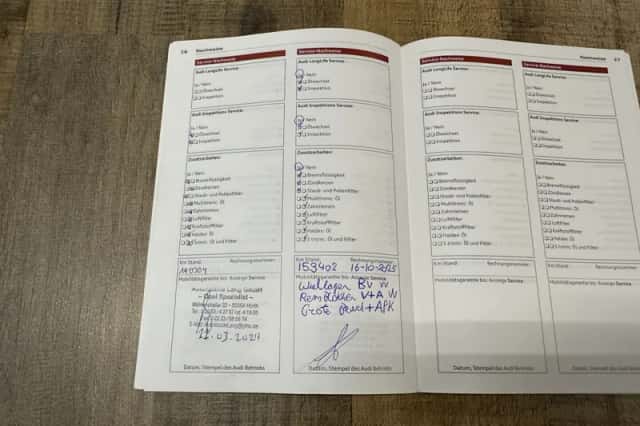 16 Nachweise
Service-Nachweise
Audi LongLife Service:
Ja / Nein
Ölwechsel
Inspektion
Audi Inspektions Service:
Ja / Nein
Ölwechsel
Inspektion
Zusatzarbeiten:
Ja / Nein
Bremsflüssigkeit
Zündkerzen
Staub- und Pollenfilter
Multitronic Öl
Zahnriemen
Luftfilter
Kraftstofffilter
Haldex Öl
S tronic Öl und Filter
Km Stand: Rechnungsnummer:
Mobilitätsgarantie bis: Anzeige Service:
– Opel Spezialist –
12.03.2024
Datum, Stempel des Audi Betriebs
Service-Nachweise
Audi LongLife Service:
Nein
Ölwechsel
Inspektion
Audi Inspektions Service:
Nein
Ölwechsel
Inspektion
Zusatzarbeiten:
Nein
Bremsflüssigkeit
Zündkerzen
Staub- und Pollenfilter
Multitronic Öl
Zahnriemen
Luftfilter
Kraftstofffilter
Haldex Öl
S tronic Öl und Filter
Km Stand: Rechnungsnummer:
153402 16-10-2025
Mobilitätsgarantie bis: Anzeige Service:
Wiellager BV W
Remblokken V+A W
Grote beurt + APK
Datum, Stempel des Audi Betriebs
Service-Nachweise
Audi LongLife Service:
Ja / Nein
Ölwechsel
Inspektion
Audi Inspektions Service:
Ja / Nein
Ölwechsel
Inspektion
Zusatzarbeiten:
Ja / Nein
Bremsflüssigkeit
Zündkerzen
Staub- und Pollenfilter
Multitronic Öl
Zahnriemen
Luftfilter
Kraftstofffilter
Haldex Öl
S tronic Öl und Filter
Km Stand: Rechnungsnummer:
Mobilitätsgarantie bis: Anzeige Service:
Datum, Stempel des Audi Betriebs
Nachweise 17
Service-Nachweise
Audi LongLife Service:
Ja / Nein
Ölwechsel
Inspektion
Audi Inspektions Service:
Ja / Nein
Ölwechsel
Inspektion
Zusatzarbeiten:
Ja / Nein
Bremsflüssigkeit
Zündkerzen
Staub- und Pollenfilter
Multitronic Öl
Zahnriemen
Luftfilter
Kraftstofffilter
Haldex Öl
S tronic Öl und Filter
Km Stand: Rechnungsnummer:
Mobilitätsgarantie bis: Anzeige Service:
Datum, Stempel des Audi Betriebs